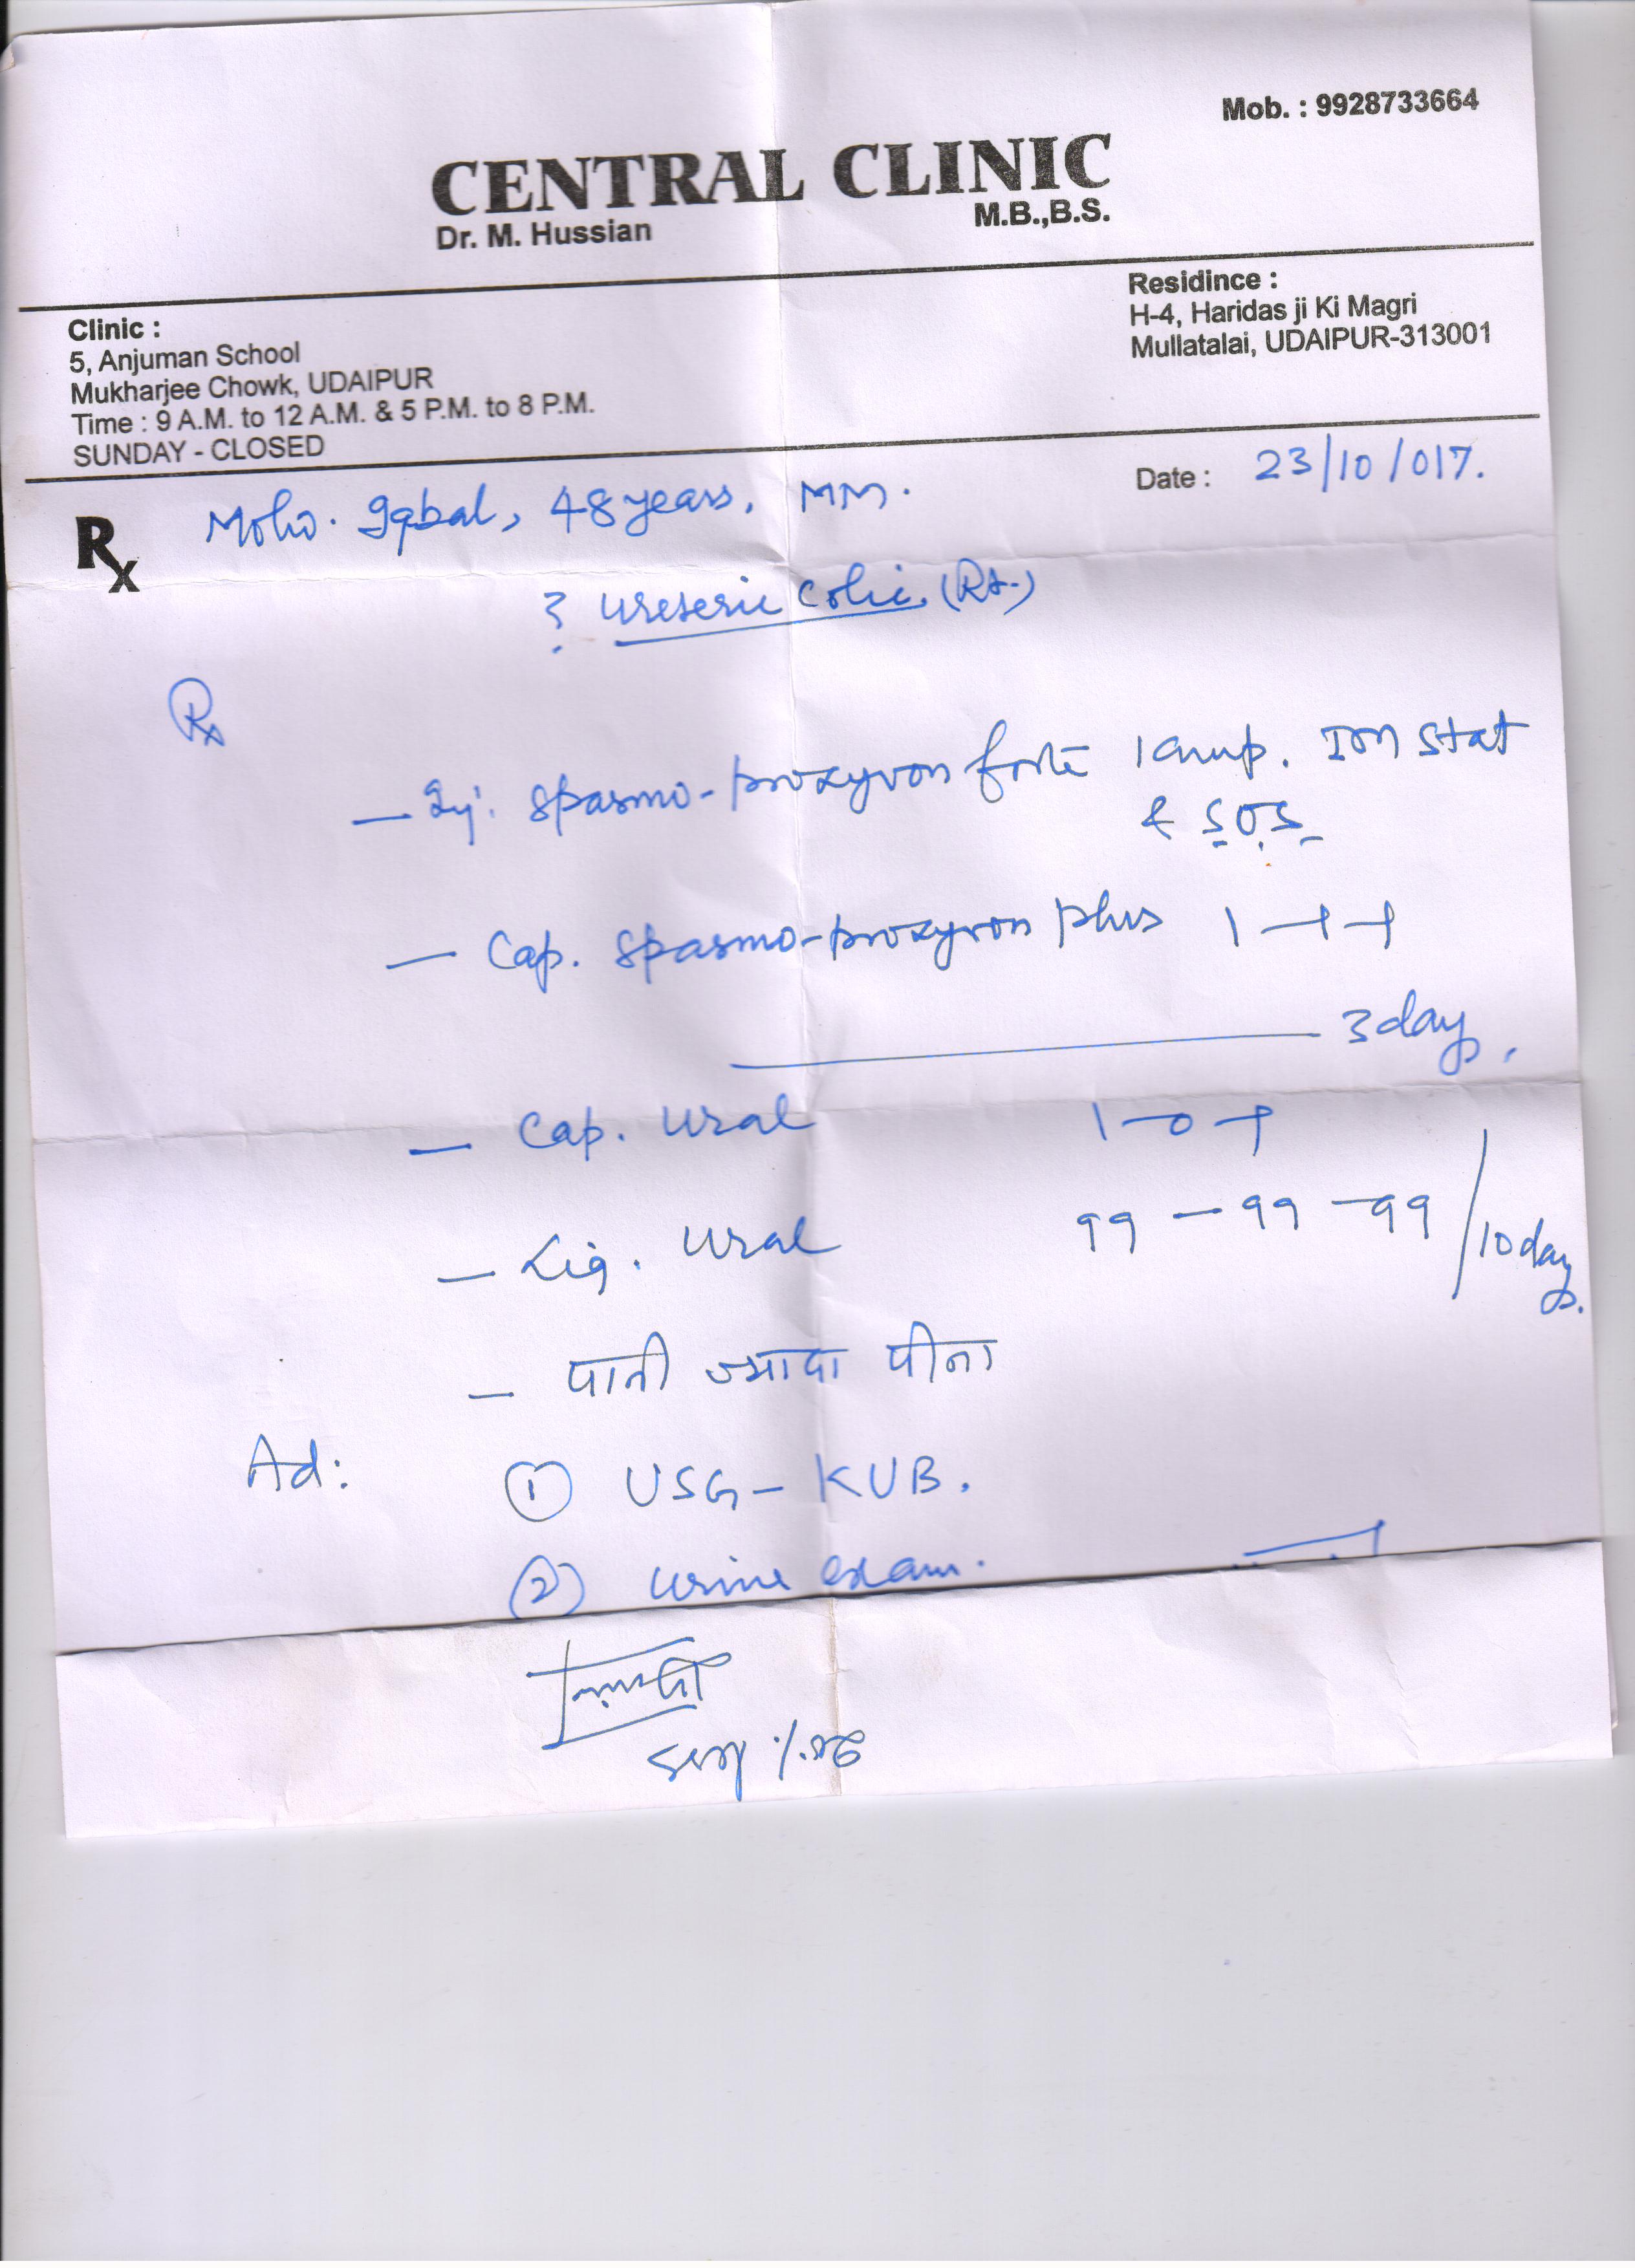 Mob. : 9928733664
CENTRAL CLINIC
Dr. M. Hussian M.B.,B.S.
Clinic :
5, Anjuman School
Mukharjee Chowk, UDAIPUR
Time : 9 A.M. to 12 A.M. & 5 P.M. to 8 P.M.
SUNDAY - CLOSED
Residince :
H-4, Haridas ji Ki Magri
Mullatalai, UDAIPUR-313001
Date : 23/10/017.
Rx Mohd. Iqbal, 48 years, MM.
? Ureteric Colic. (Rt.)
Rx
— Inj. Spasmo-proxyvon forte 1 amp. IM Stat
& SOS
— Cap. Spasmo-proxyvon plus 1 - 1 - 1
3 days.
— Cap. Ural 1 - 0 - 1
— Liq. Ural 99 - 99 - 99 / 10 days.
— पानी ज्यादा पीना
Ad: ① USG - KUB.
② Urine exam.